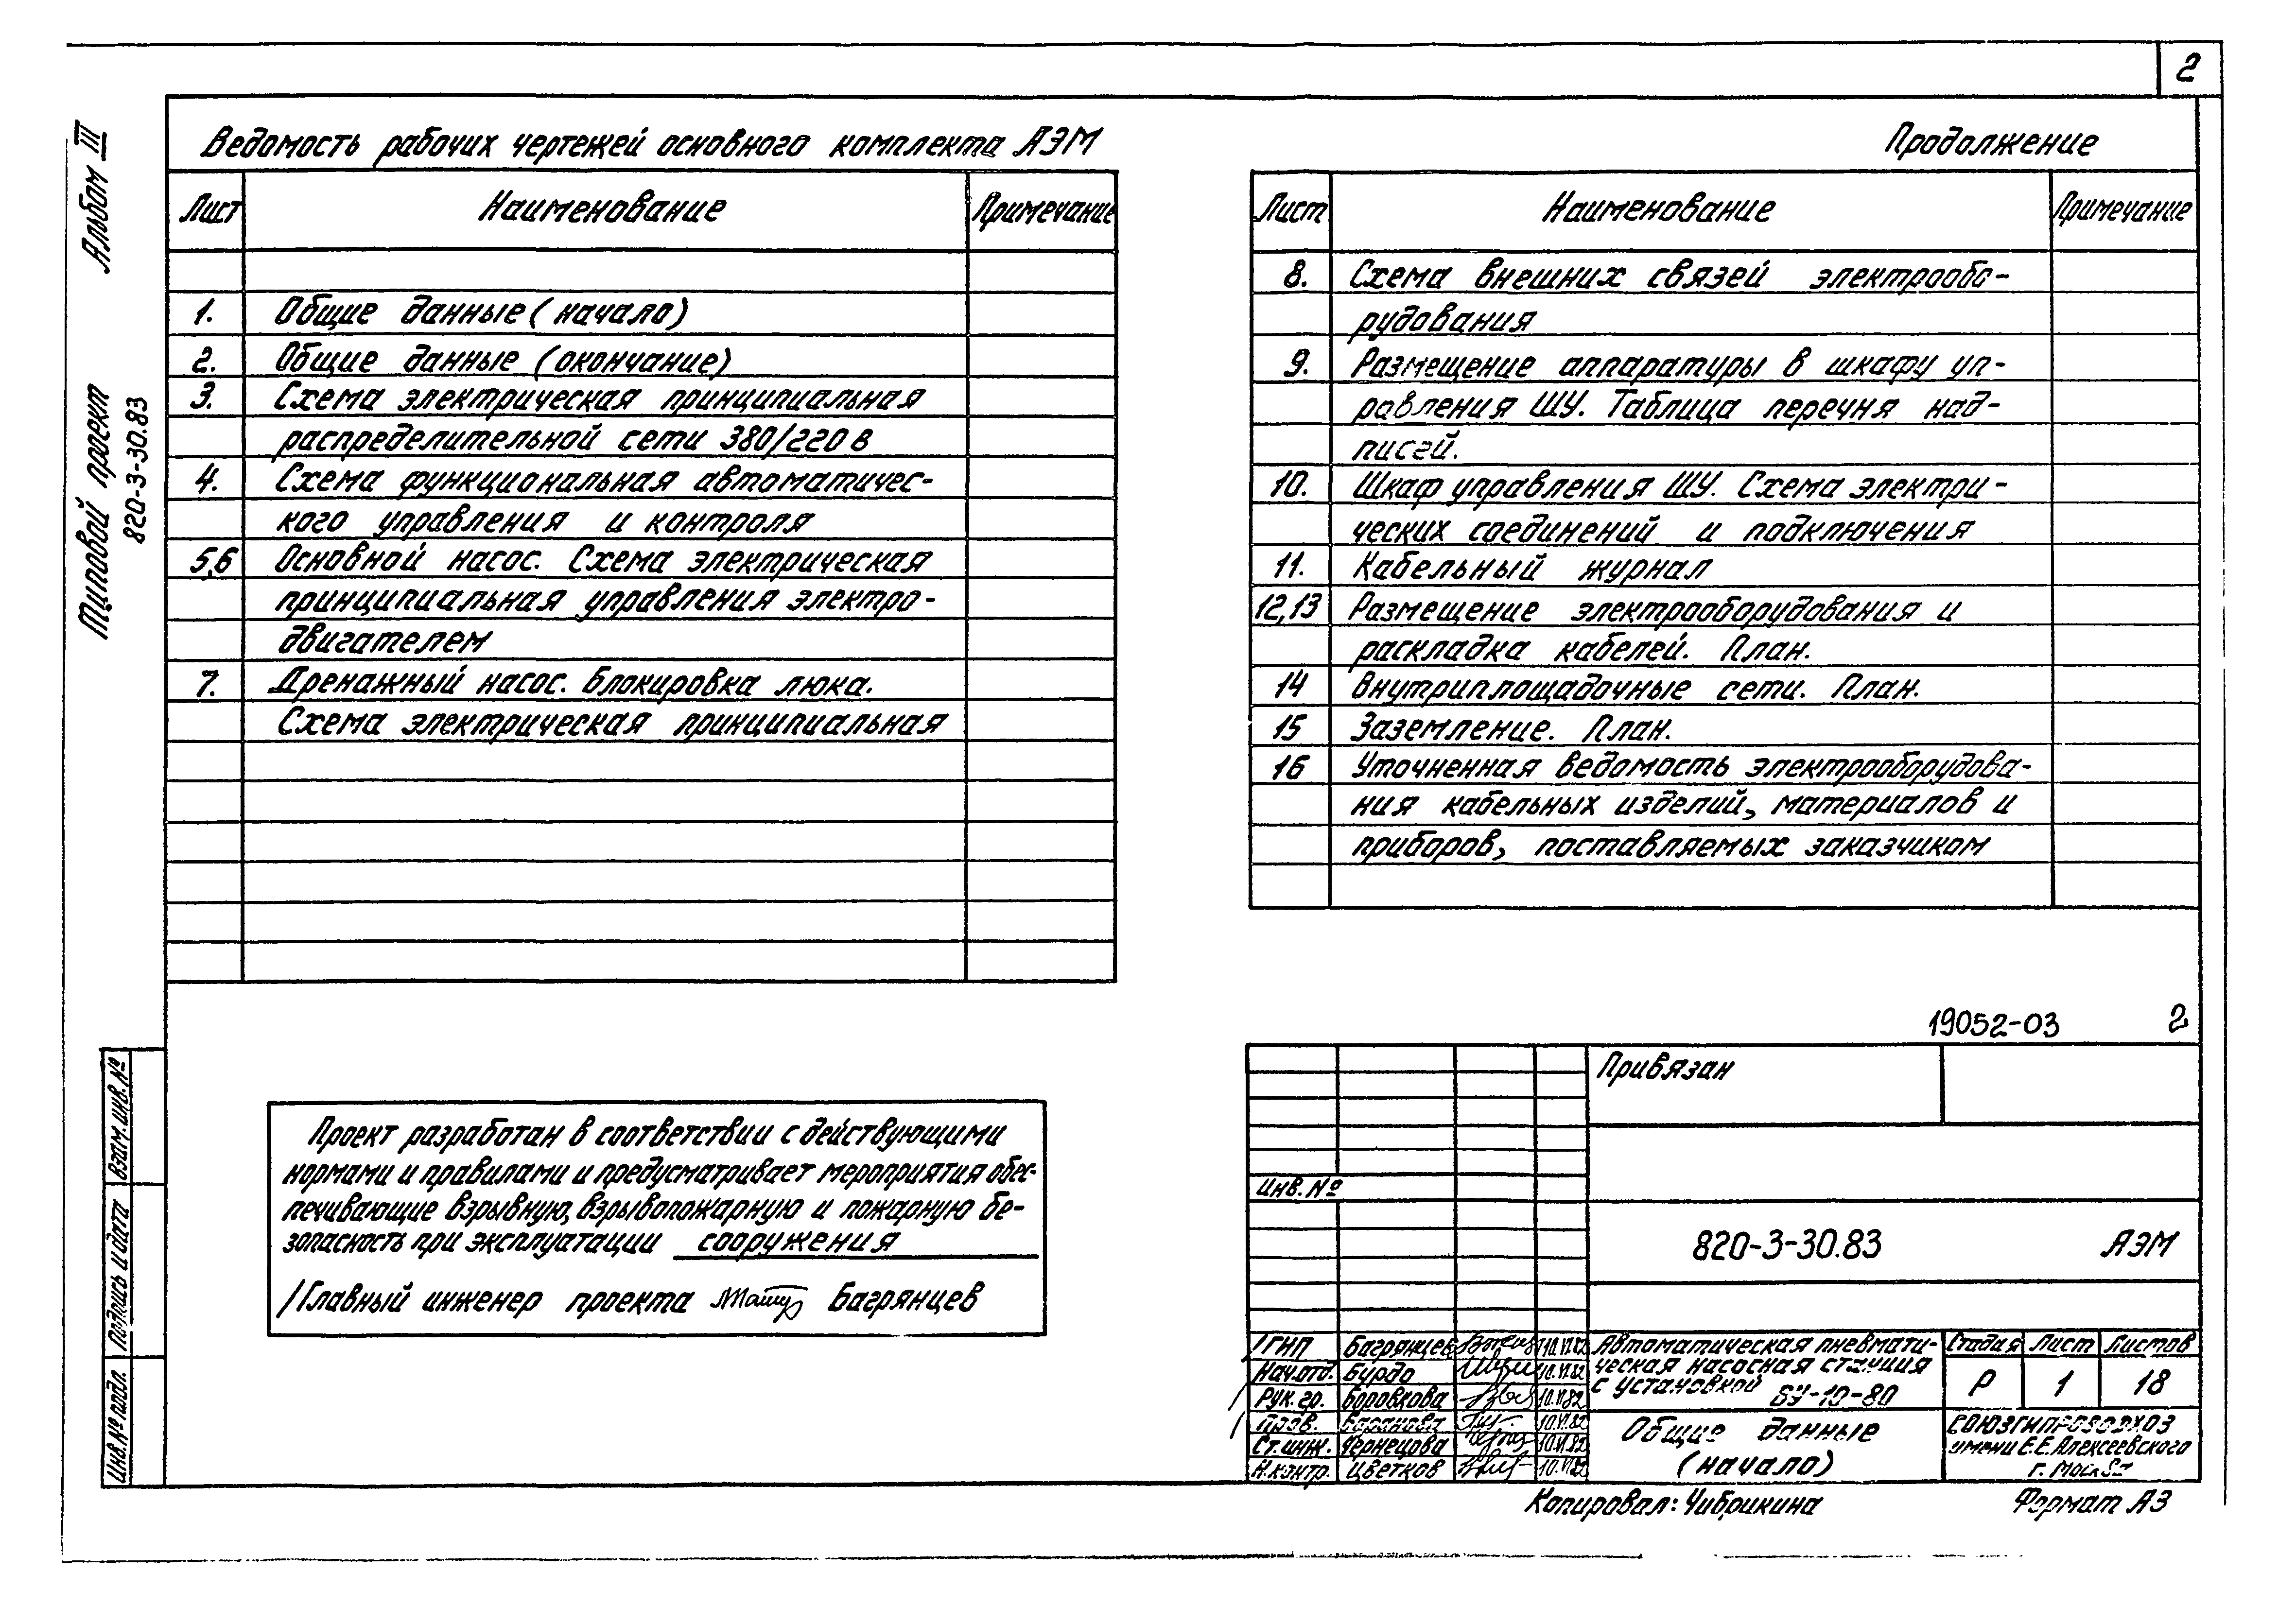 2
Альбом III
Типовой проект
820-3-30.83
Ведомость рабочих чертежей основного комплекта АЭМ
Лист Наименование Примечание
1. Общие данные (начало)
2. Общие данные (окончание)
3. Схема электрическая принципиальная
распределительной сети 380/220 в
4. Схема функциональная автоматичес-
кого управления и контроля
5,6 Основной насос. Схема электрическая
принципиальная управления электро-
двигателем
7. Дренажный насос. Блокировка люка.
Схема электрическая принципиальная
Продолжение
Лист Наименование Примечание
8. Схема внешних связей электрообо-
рудования
9. Размещение аппаратуры в шкафу уп-
равления ШУ. Таблица перечня над-
писей.
10. Шкаф управления ШУ. Схема электри-
ческих соединений и подключения
11. Кабельный журнал
12,13 Размещение электрооборудования и
раскладка кабелей. План.
14 Внутриплощадочные сети. План.
15 Заземление. План.
16 Уточненная ведомость электрооборудова-
ния кабельных изделий, материалов и
приборов, поставляемых заказчиком
19052-03 2
Проект разработан в соответствии с действующими
нормами и правилами и предусматривает мероприятия обес-
печивающие взрывную, взрывопожарную и пожарную бе-
зопасность при эксплуатации сооружения
/Главный инженер проекта Багрянцев
Взам. инв. №
Подпись и дата
Инв. № подл.
Привязан
Инв. №
820-3-30.83 АЭМ
ГИП Багрянцев 10.VI.82
Нач. отд. Бурдо 10.VI.82
Рук. гр. Боровкова 10.VI.82
Пров. Баранова 10.VI.82
Ст. инж. Чернецова 10.VI.82
Н. контр. Цветков 10.VI.82
Автоматическая пневмати-
ческая насосная станция
с установкой ВУ-10-80
Стадия Лист Листов
Р 1 18
Общие данные
(начало)
СОЮЗГИПРОВОДХОЗ
имени Е.Е. Алексеевского
г. Москва
Копировал: Чибрикина Формат А3